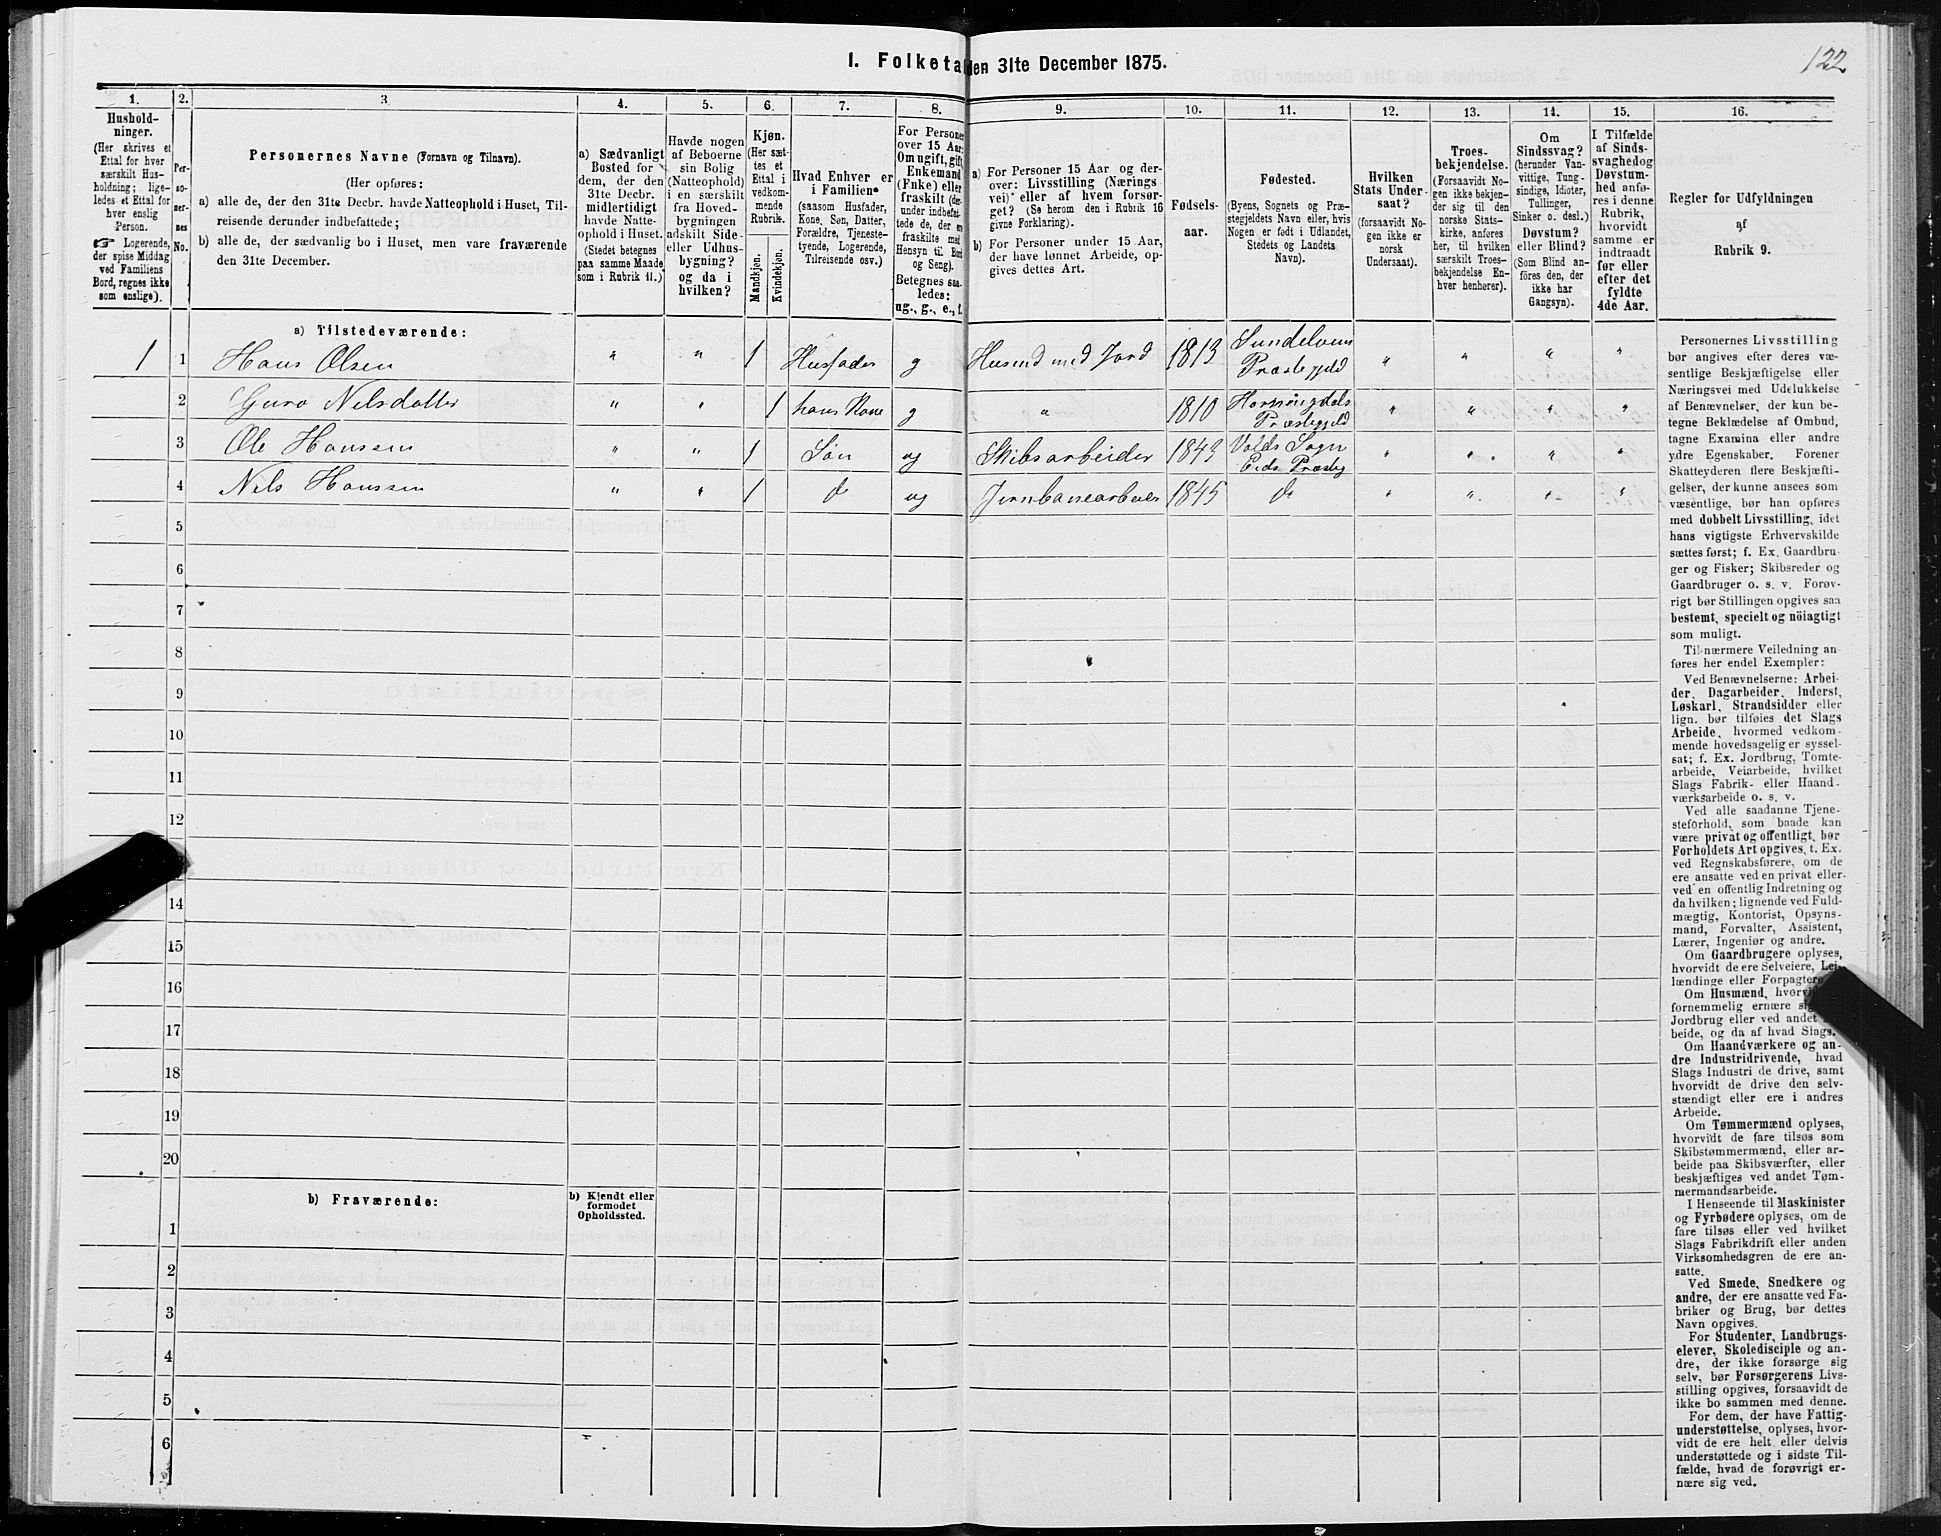 122
1. Folketa den 31te December 1875.
1. 2. 3. 4. 5. 6. 7. 8. 9. 10. 11. 12. 13. 14. 15. 16.
Hushold-
ninger.
(Her skrives et
Ettal for hver
særskilt Hus-
holdning; lige-
ledes et Ettal for
hver enslig
Person.
☞ Logerende,
der spise Middag
ved Familiens
Bord, regnes ikke
som enslige).
Per-
so-
ner-
nes
No.
Personernes Navne (Fornavn og Tilnavn).
(Her opføres:
a) alle de, der den 31te Decbr. havde Natteophold i Huset, Til-
reisende derunder indbefattede;
b) alle de, der sædvanlig bo i Huset, men vare fraværende
den 31te December.
a) Sædvanligt
Bosted for
dem, der den
31te Decbr.
midlertidigt
havde Natte-
ophold i Huset.
(Stedet betegnes
paa samme Maade
som i Rubrik 11.)
Havde nogen
af Beboerne
sin Bolig
(Natteophold)
i en særskilt
fra Hoved-
bygningen
adskilt Side-
eller Udhus-
bygning?
og da i
hvilken?
Kjøn.
(Her sæt-
tes et
Ettal i
vedkom-
mende
Rubrik.
Mandkjøn.
Kvindekjøn.
Hvad Enhver er
i Familien
(saasom Husfader,
Kone, Søn, Datter,
Forældre, Tjeneste-
tyende, Logerende,
Tilreisende osv.)
For Personer
over 15 Aar:
Om ugift, gift,
Enkemand
(Enke) eller
fraskilt (der-
under indbefat-
tede de, der er
fraskilte med
Hensyn til Bord
og Seng).
Betegnes saa-
ledes:
ug., g., e., f.
a) For Personer 15 Aar og der-
over: Livsstilling (Nærings
vei) eller af hvem forsør-
get? (Se herom den i Rubrik 16
givne Forklaring);
b) For Personer under 15 Aar,
der have lønnet Arbeide, op-
gives dettes Art.
Fødsels-
aar.
Fødested.
(Byens, Sognets og Præ-
stegjeldets Navn eller, hvis
Nogen er født i Udlandet,
Stedets og Landets
Navn).
Hvilken
Stats Under-
saat?
(forsaavidt No-
gen ikke er
norsk
Undersaat).
Troes-
bekjendelse.
(Forsaavidt No-
gen ikke bekjen-
der sig til den
norske Stats-
kirke, anføres
her, til hvilken
særskilt Troes-
bekjendelse En-
hver henhører).
Om
Sindssvag?
(herunder Van-
vittige, Tung-
sindige, Idioter,
Tullinger,
Sinker o. desl.)
Døvstum?
eller Blind?
(Som Blind an-
føres den, der
ikke har
Gangsyn).
I Tilfælde
af Sinds-
svaghed og
Døvstum-
hed anfø-
res i denne
Rubrik,
hvorvidt
samme er
indtraadt
før eller
efter det
fyldte
4de Aar.
Regler for Udfyldningen
af
Rubrik 9.
a) Tilstedeværende:
1 1 Hans Olsen " " 1 Husfader g Husmd med Jord 1813 Sundelvens Præstegjeld " " " "
2 Guro Nilsdatter " " 1 hans Kone g " 1810 Hornindals Præstegjeld " " " "
3 Ole Hanssen " " 1 Søn ug Skibsarbeider 1843 Volds Sogn Eids Præsteg " " " "
4 Nils Hanssen " " 1 do ug Jernbanearbeider 1845 do " " " "
5
6
7
8
9
10
11
12
14
15
16
17
18
19
20
b) Fraværende:
b) Kjendt eller
formodet
Opholdssted.
1
2
3
4
5
6
Personernes Livsstilling
bør angives efter deres væ-
sentlige Beskjæftigelse eller
Næringsvei med Udelukkelse
af Benævnelser, der kun be-
tegne Beklædelse af Ombud,
tagne Examina eller andre
ydre Egenskaber. Forener
Skatteyderen flere Beskjæfti-
gelser, der kunne ansees som
væsentlige, bør han opføres
med dobbelt Livsstilling, idet
hans vigtigste Erhvervskilde
sættes først; f. Ex. Gaardbru-
ger og Fisker; Skibsreder og
Gaardbruger o. s. v. Forøv-
rigt bør Stillingen opgives saa
bestemt, specielt og nöiagtigt
som muligt.
Til nærmere Veiledning an-
føres her endel Exempler:
Ved Benævnelserne: Arbei-
der, Dagarbeider, Inderst,
Løskarl, Strandsidder eller
lign. bør tilføies det Slags
Arbeide, hvormed vedkom-
mende hovedsagelig er syssel-
sat; f. Ex. Jordbrug, Tomte-
arbeide, Veiarbeide, hvilket
Slags Fabrik- eller Haand-
værksarbeide o. s. v.
Ved alle saadanne Tjene-
steforhold, som baade kan
være privat og offentligt, bør
Forholdets Art opgives, t. Ex.
ved Regnskabsførere, om de
ere ansatte ved en privat eller
ved en offentlig Indretning og
da hvilken; lignende ved Fuld-
mægtig, Kontorist, Opsyns-
mand, Forvalter, Assistent,
Lærer, Ingeniør og andre.
Om Gaardbrugere oplyses,
hvorvidt de ere Selveiere, Lei-
lændinge eller Forpagtere.
Om Husmænd,
fornemmelig ernære
Jordbrug eller ved andet
beide, og da af hvad Slags.
Om Haandværkere og an-
dre Industridrivende, hvad
Slags Industri de drive, samt
hvorvidt de drive den selv-
stændigt eller ere i andres
Arbeide.
Om Tømmermænd oplyses,
hvorvidt de fare tilsøs som
Skibstømmermænd, eller ar-
beide paa Skibsværfter, eller
beskjæftiges ved andet Tøm-
mermandsarbeide.
I Henseende til Maskinister
og Fyrbødere oplyses, om de
fare tilsøs eller ved hvilket
Slags Fabrikdrift eller anden
Virksomhedsgren de ere an-
satte.
Ved Smede, Snedkere og
andre, der ere ansatte ved Fa-
briker og Brug, bør dettes
Navn opgives.
For Studenter, Landbrugs-
elever, Skoledisciple og an-
dre, der ikke forsørge sig
selv, bør Forsørgerens Livs-
stilling opgives, forsaavidt de
ikke bo sammen med denne.
For dem, der have Fattig-
understøttelse, oplyses, hvor-
vidt de ere helt eller delvis
understøttede og i sidste Til-
fælde, hvad de forøvrigt er-
nære sig ved.